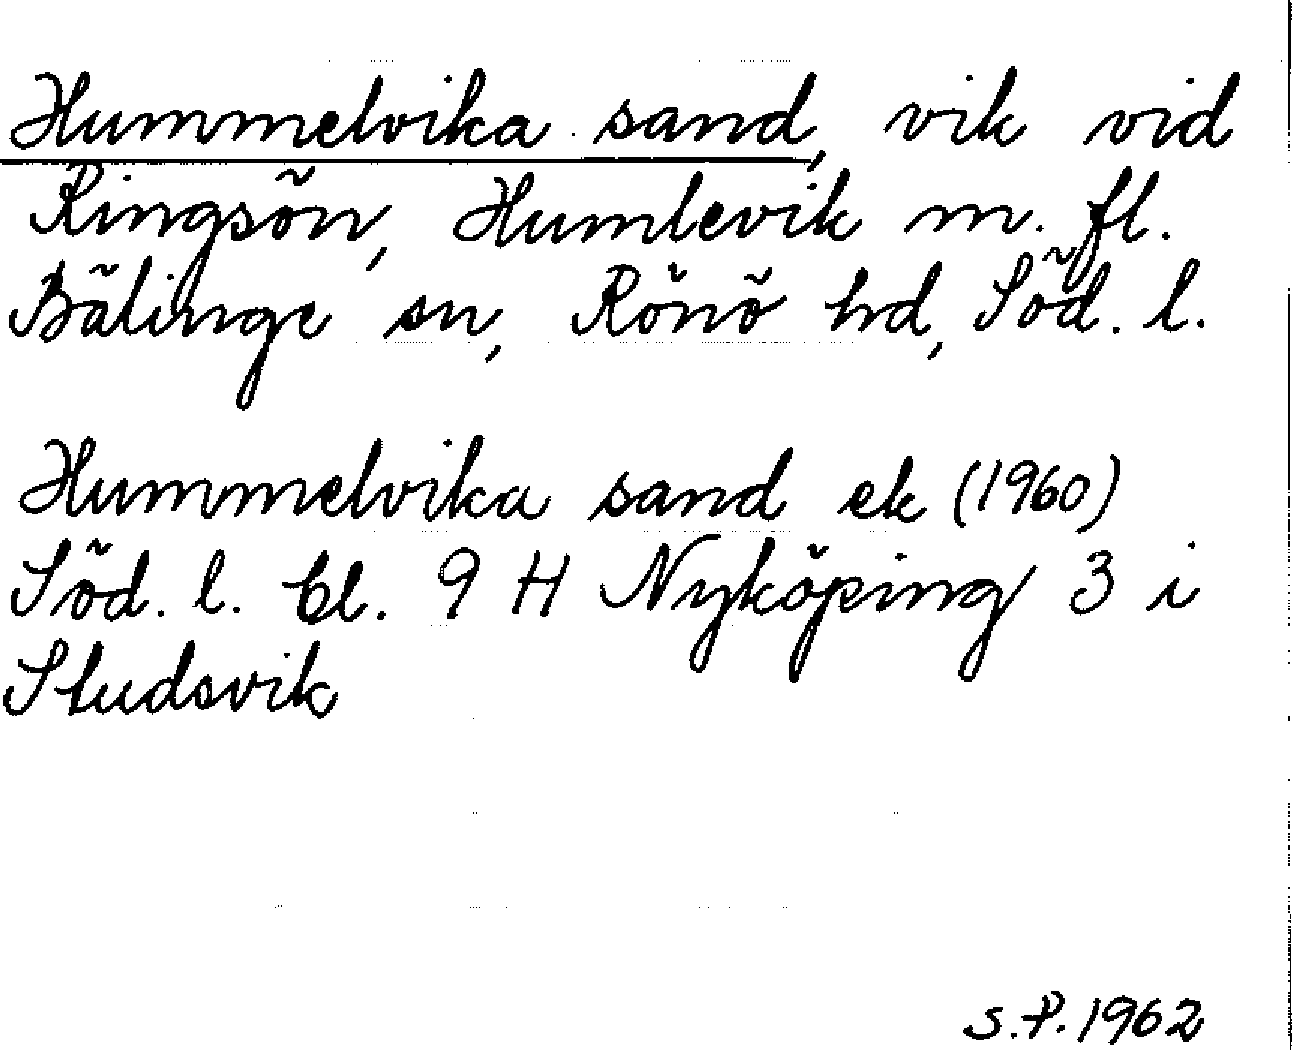 Hummelvika sand, vik vid
Ringsön, Humlevik m. fl.
Bälinge sn, Rönö hd, Söd. l.
Hummelvika sand ek (1960)
Söd. l. bl. 9 H Nyköping 3 i
Studsvik
S.P. 1962